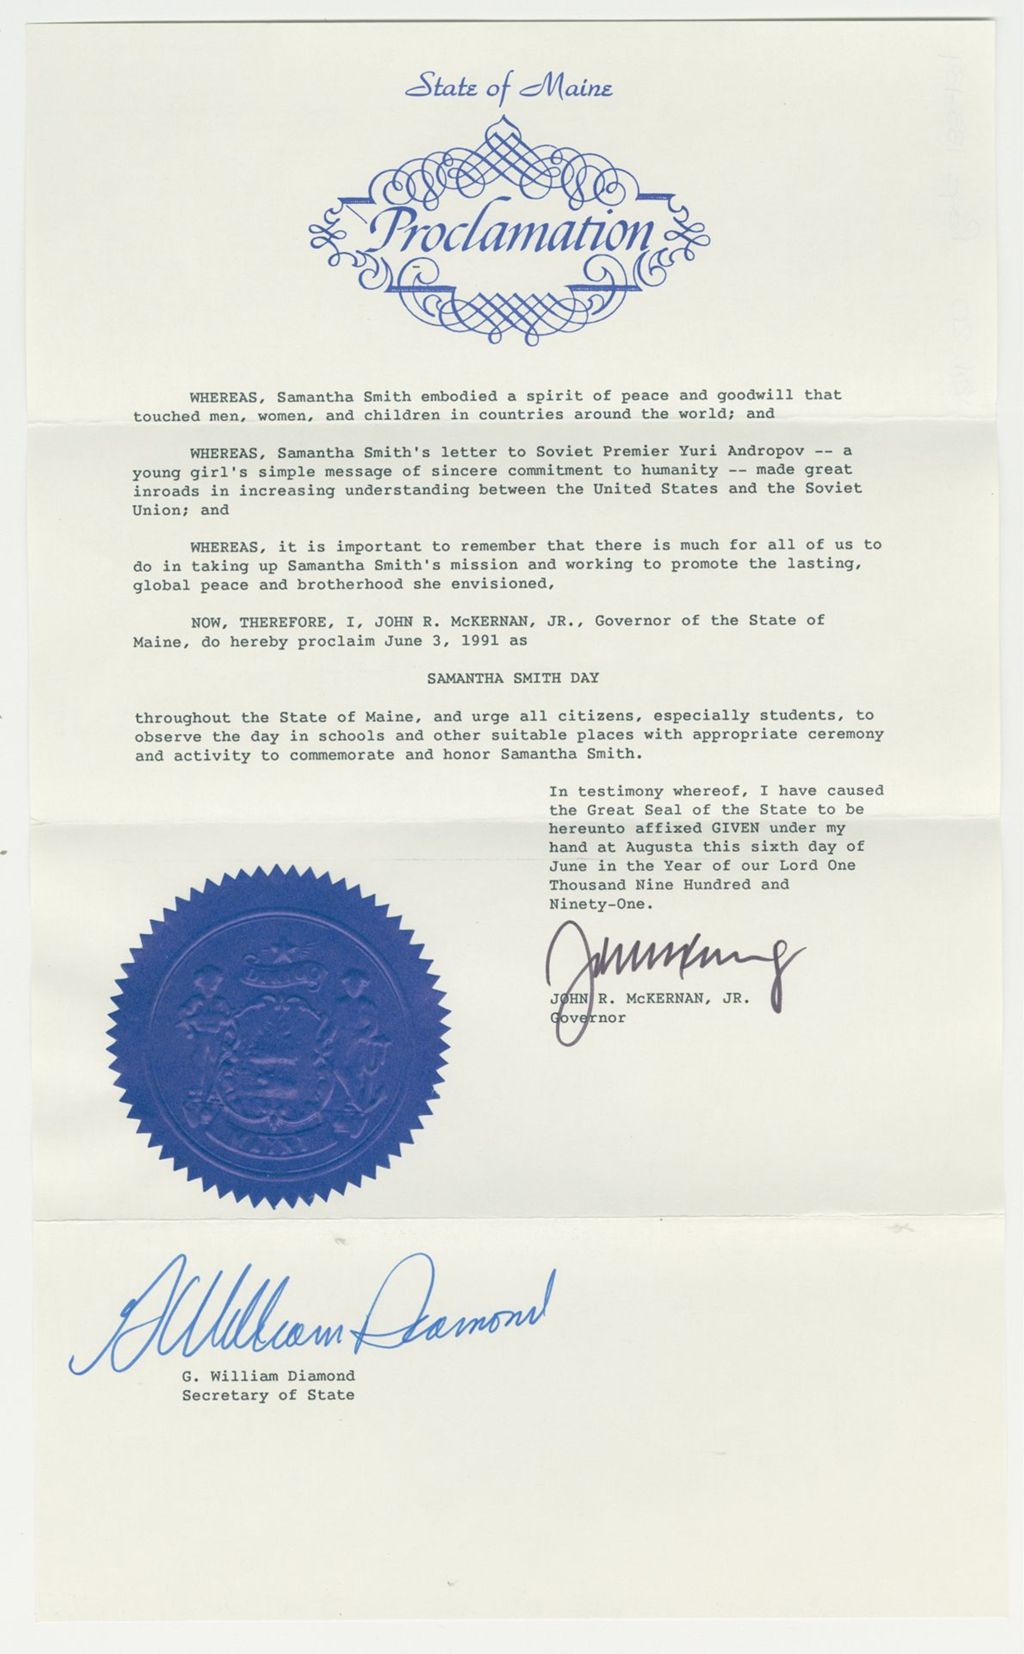 State of Maine
Proclamation
WHEREAS, Samantha Smith embodied a spirit of peace and goodwill that
touched men, women, and children in countries around the world; and
WHEREAS, Samantha Smith's letter to Soviet Premier Yuri Andropov -- a
young girl's simple message of sincere commitment to humanity -- made great
inroads in increasing understanding between the United States and the Soviet
Union; and
WHEREAS, it is important to remember that there is much for all of us to
do in taking up Samantha Smith's mission and working to promote the lasting,
global peace and brotherhood she envisioned,
NOW, THEREFORE, I, JOHN R. McKERNAN, JR., Governor of the State of
Maine, do hereby proclaim June 3, 1991 as
SAMANTHA SMITH DAY
throughout the State of Maine, and urge all citizens, especially students, to
observe the day in schools and other suitable places with appropriate ceremony
and activity to commemorate and honor Samantha Smith.
In testimony whereof, I have caused
the Great Seal of the State to be
hereunto affixed GIVEN under my
hand at Augusta this sixth day of
June in the Year of our Lord One
Thousand Nine Hundred and
Ninety-One.
JOHN R. McKERNAN, JR.
Governor
G William Diamond
G. William Diamond
Secretary of State